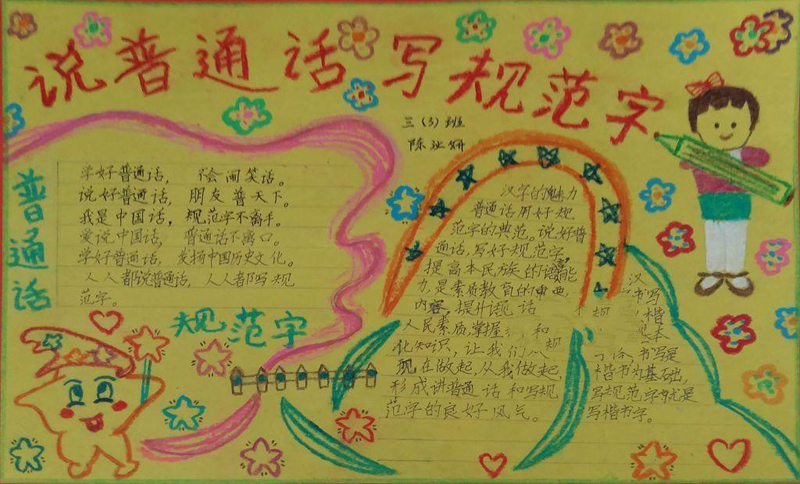 说普通话写规范字
三(3)班
普通话
学好普通话，不会闹笑话。
说好普通话，朋友普天下。
我是中国话，规范字不离手。
爱说中国话，普通话不离口。
学好普通话，发扬中国历史文化。
人人都说普通话，人人都写规
范字。
规范字
汉字的魅力
普通话用好规
范字的典范，说好普
通话，写好规范字，
提高本民族的能
力，是素质教育的
内容，提升 话
人民素质掌握 和
化知识，让我们 规
现在做起，从我做起
形成讲普通话和写规
范字的良好风气。
汉
书写
楷
本
书写是
楷书为基础，
写规范字就是
写楷书字。